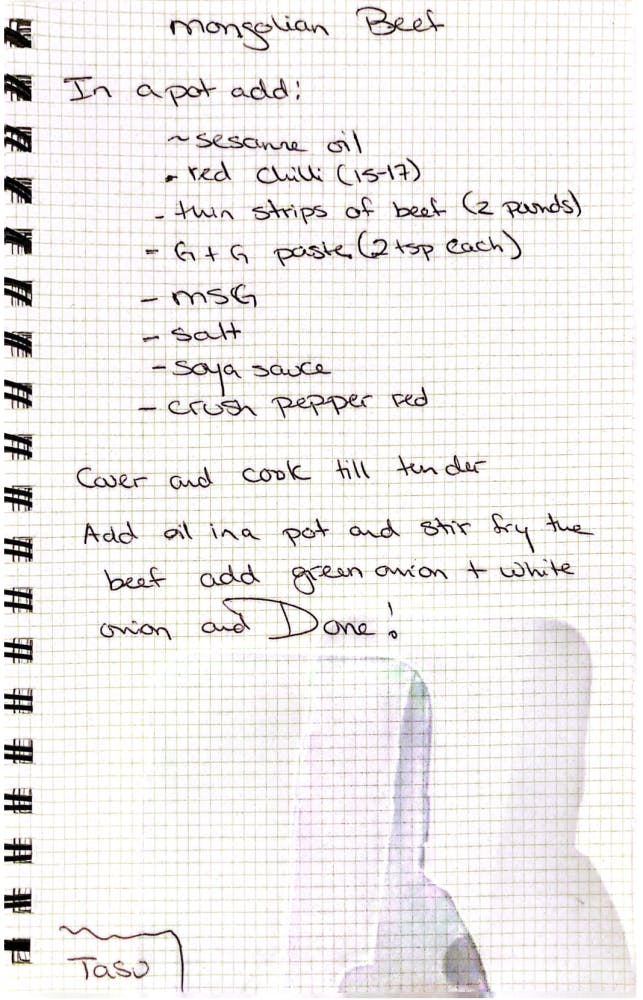 mongolian Beef
In a pot add:
~ sesame oil
- red chilli (15-17)
- thin strips of beef (2 pounds)
- G + G paste (2 tsp each)
- MSG
- salt
- soya sauce
- crush pepper red
Cover and cook till tender
Add oil in a pot and stir fry the
beef add green onion + white
onion and Done!